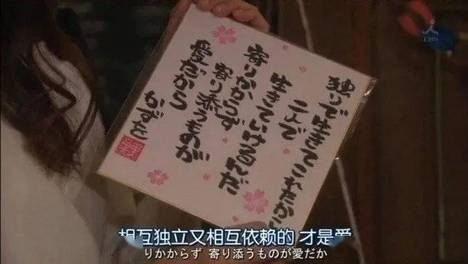 独りで生きてこれたから
二人で
生きていけるんだ
寄りかからず
寄り添うものが
愛だから
かずを
相互独立又相互依赖的 才是爱
りかからず 寄り添うものが愛だか